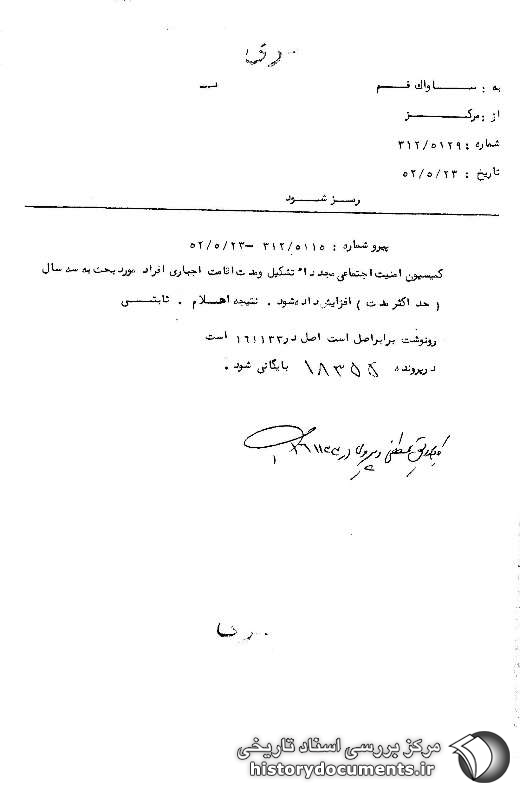 به : ســـاواك قـــم
از : مركــــــز
شماره : ۳۱۲/۵۱۲۹
تاریخ : ۵۲/۵/۲۳
رمـز شـــود
پیرو شماره : ۳۱۲/۵۱۱۵ – ۵۲/۵/۲۳
کمیسیون امنیت اجتماعی مجدداً تشکیل ومدت اقامت اجباری افراد مورد بحث به سه سال
( حد اکثر مدت ) افزایش داده شود . نتیجه اعلام . ثابتـــی
رونوشت برابراصل است اصل در ۱۶۱۱۳۳ است
درپرونده ۱۸۳۵۵ بایگانی شود .
مرکز بررسی اسناد تاریخی
historydocuments.ir